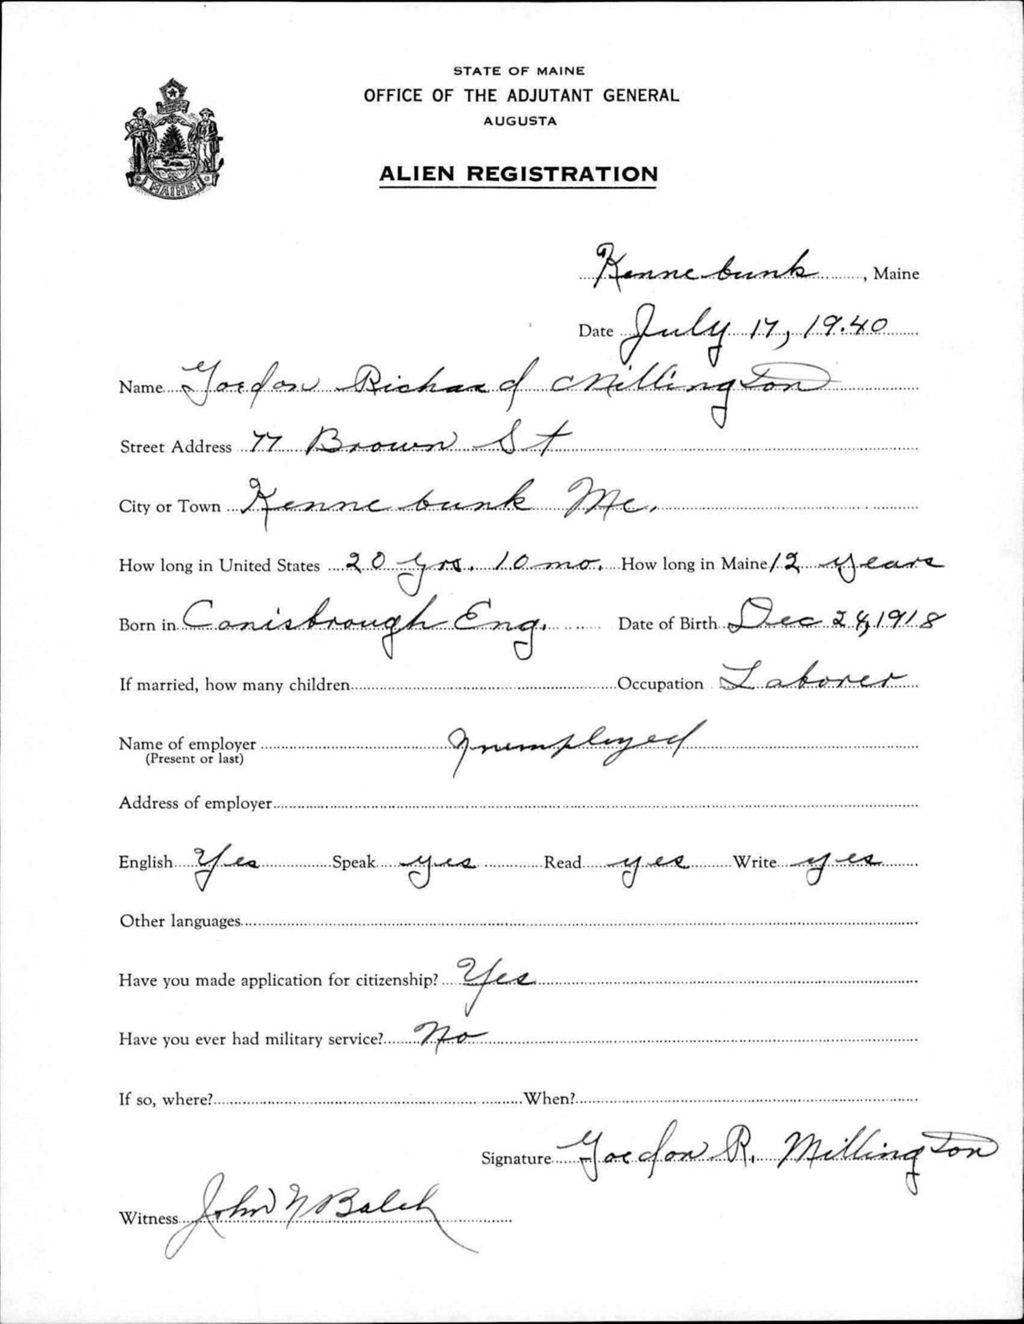 STATE OF MAINE
OFFICE OF THE ADJUTANT GENERAL
AUGUSTA
ALIEN REGISTRATION
MAINE
Kennebunk, Maine
Date July 17, 1940
Name Gordon Richard Millington
Street Address 77 Brown St
City or Town Kennebunk Me.
How long in United States 20 Yrs. 10 mo. How long in Maine 12 years
Born in Conisbrough Eng. Date of Birth Dec 24, 1918
If married, how many children Occupation Laborer
Name of employer Unemployed
(Present or last)
Address of employer
English Yes Speak yes Read yes Write yes
Other languages
Have you made application for citizenship? Yes
Have you ever had military service? No
If so, where? When?
Signature Gordon R. Millington
Witness John N Balch